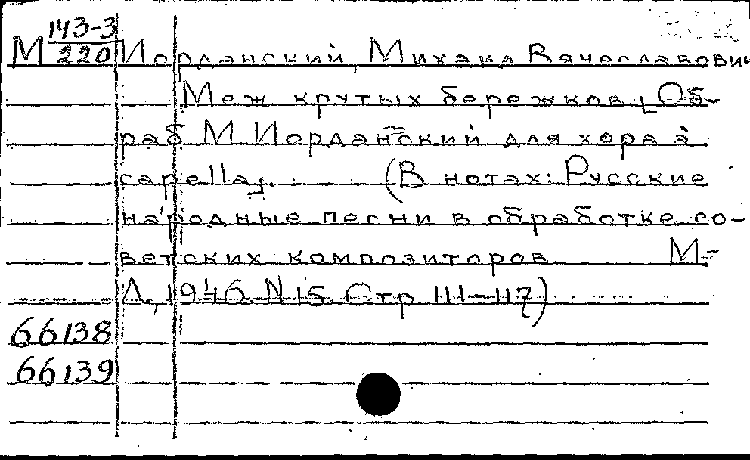 143-3
М 220 Иорданский, Михаил Вячеславович
Меж крутых бережков [Об-
раб М Иорданский для хора à
capella]. (В нотах: Русские
народные песни в обработке со-
ветских композиторов М-
Л, 1946 N 15 Стр 111-117)
66138
66139